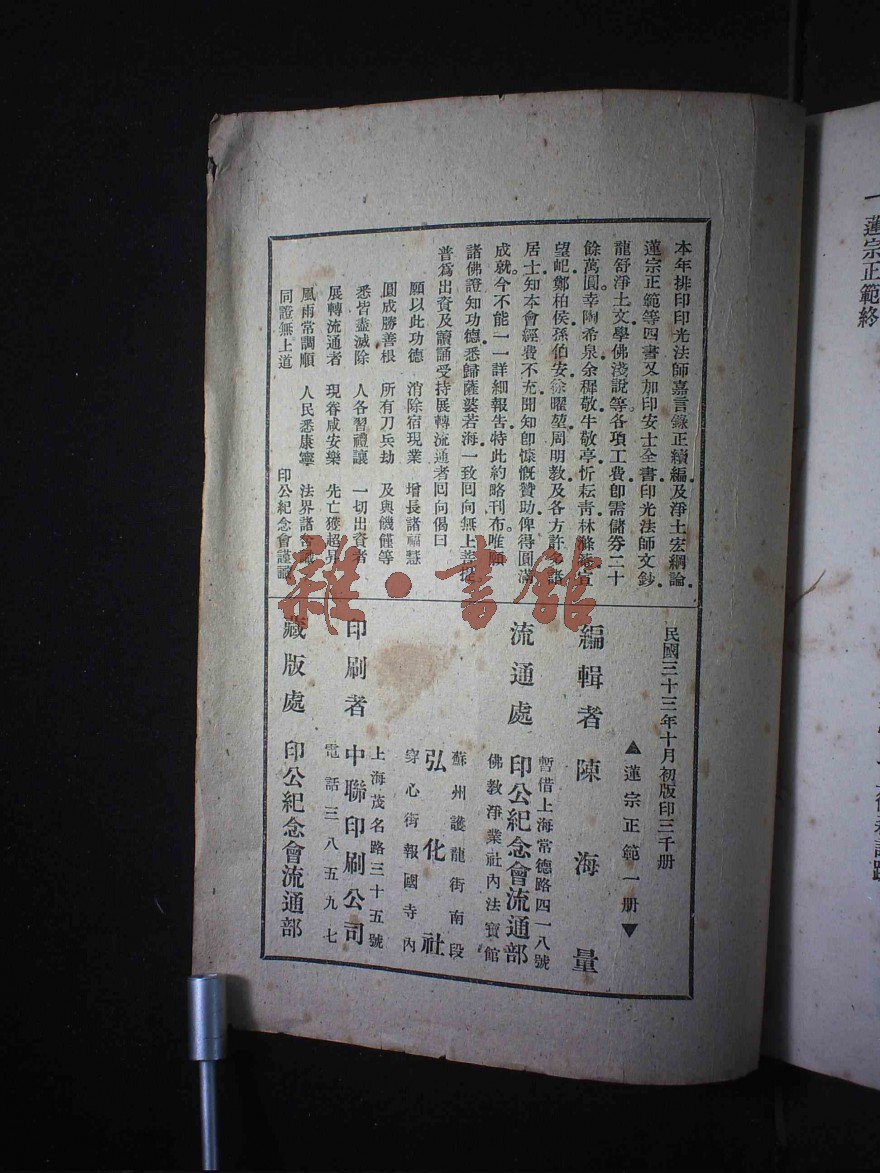 蓮宗正範終
本年排印印光法師嘉言錄正續編及淨土宏綱論
蓮宗正範等四書又加印安士全書印光法師文鈔
龍舒淨土文學佛淺說等各項工費卽需儲券二十
餘萬圓幸陶希泉余穉敬牛敬亭忻耘青林滌庵宣
望屺鄭柏侯孫伯安徐曜堃周明敎及各方許多諸
居士知本會經費不充聞知卽慷慨贊助俾得圓滿
成就。今不能一一詳細報告特此約略刊布唯願
諸佛證知功德悉歸薩婆若海一致回向無上菩提。
普爲出資及讀誦受持展轉流通者回向偈曰
願以此功德 消除宿現業 增長諸福慧
圓成勝善根 所有刀兵劫 及與饑僅等
悉皆盡滅除 人各習禮讓 一切出資者
展轉流通者 現眷咸安樂 先亡獲超昇
風雨常調順 人民悉康寧 法界諸含識
同證無上道 印公紀念會謹識
民國三十三年十月初版印三千册
▲蓮宗正範一册▼
編輯者 陳海量
流通處
暫借上海常德路四一八號
印公紀念會流通部
佛教淨業社內法寶館
蘇州護龍街南段
弘化社
穿心街報國寺內
印刷者
上海茂名路三十五號
中聯印刷公司
電話三八五九七
藏版處 印公紀念會流通部
雜·書館